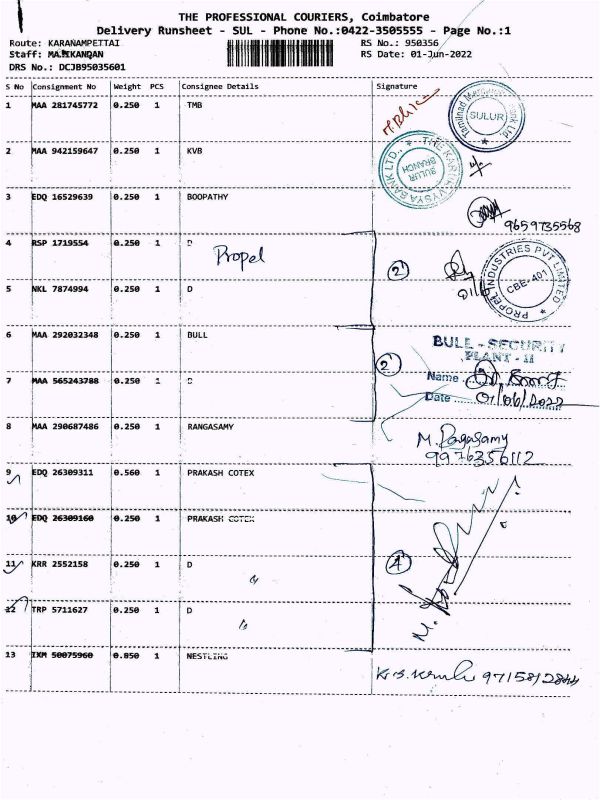 THE PROFESSIONAL COURIERS, Coimbatore
Delivery Runsheet - SUL - Phone No.:0422-3505555 - Page No.:1
Route: KARANAMPETTAI RS No.: 950356
Staff: MANIKANDAN RS Date: 01-Jun-2022
DRS No.: DCJB95035601
S No Consignment No Weight PCS Consignee Details Signature
1 MAA 281745772 0.250 1 TMB
Tamilnad Mercantile Bank Ltd.
SULUR
2 MAA 942159647 0.250 1 KVB
THE KARUR VYSYA BANK LTD.,
SULUR
BRANCH
3 EDQ 16529639 0.250 1 BOOPATHY
9659735568
4 RSP 1719554 0.250 1 D
Propel
2
PROPEL INDUSTRIES PVT LIMITED
CBE-401
5 NKL 7874994 0.250 1 D
6 MAA 292032348 0.250 1 BULL
BULL - SECURITY
PLANT - II
2
7 MAA 565243788 0.250 1 D
Name
Date 01/06/2022
8 MAA 290687486 0.250 1 RANGASAMY
M. Ragasamy
9976356112
9 EDQ 26309311 0.560 1 PRAKASH COTEX
10 EDQ 26309160 0.250 1 PRAKASH COTEX
11 KRR 2552158 0.250 1 D
4
12 TRP 5711627 0.250 1 D
13 IXM 50075960 0.850 1 NESTLING